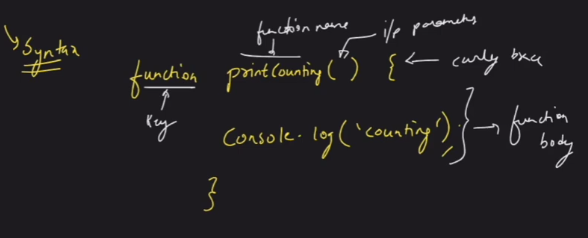 Syntax
function name
i/p parameters
function printCounting( ) {
curly brace
Key
Console.log('counting');
function
body
}